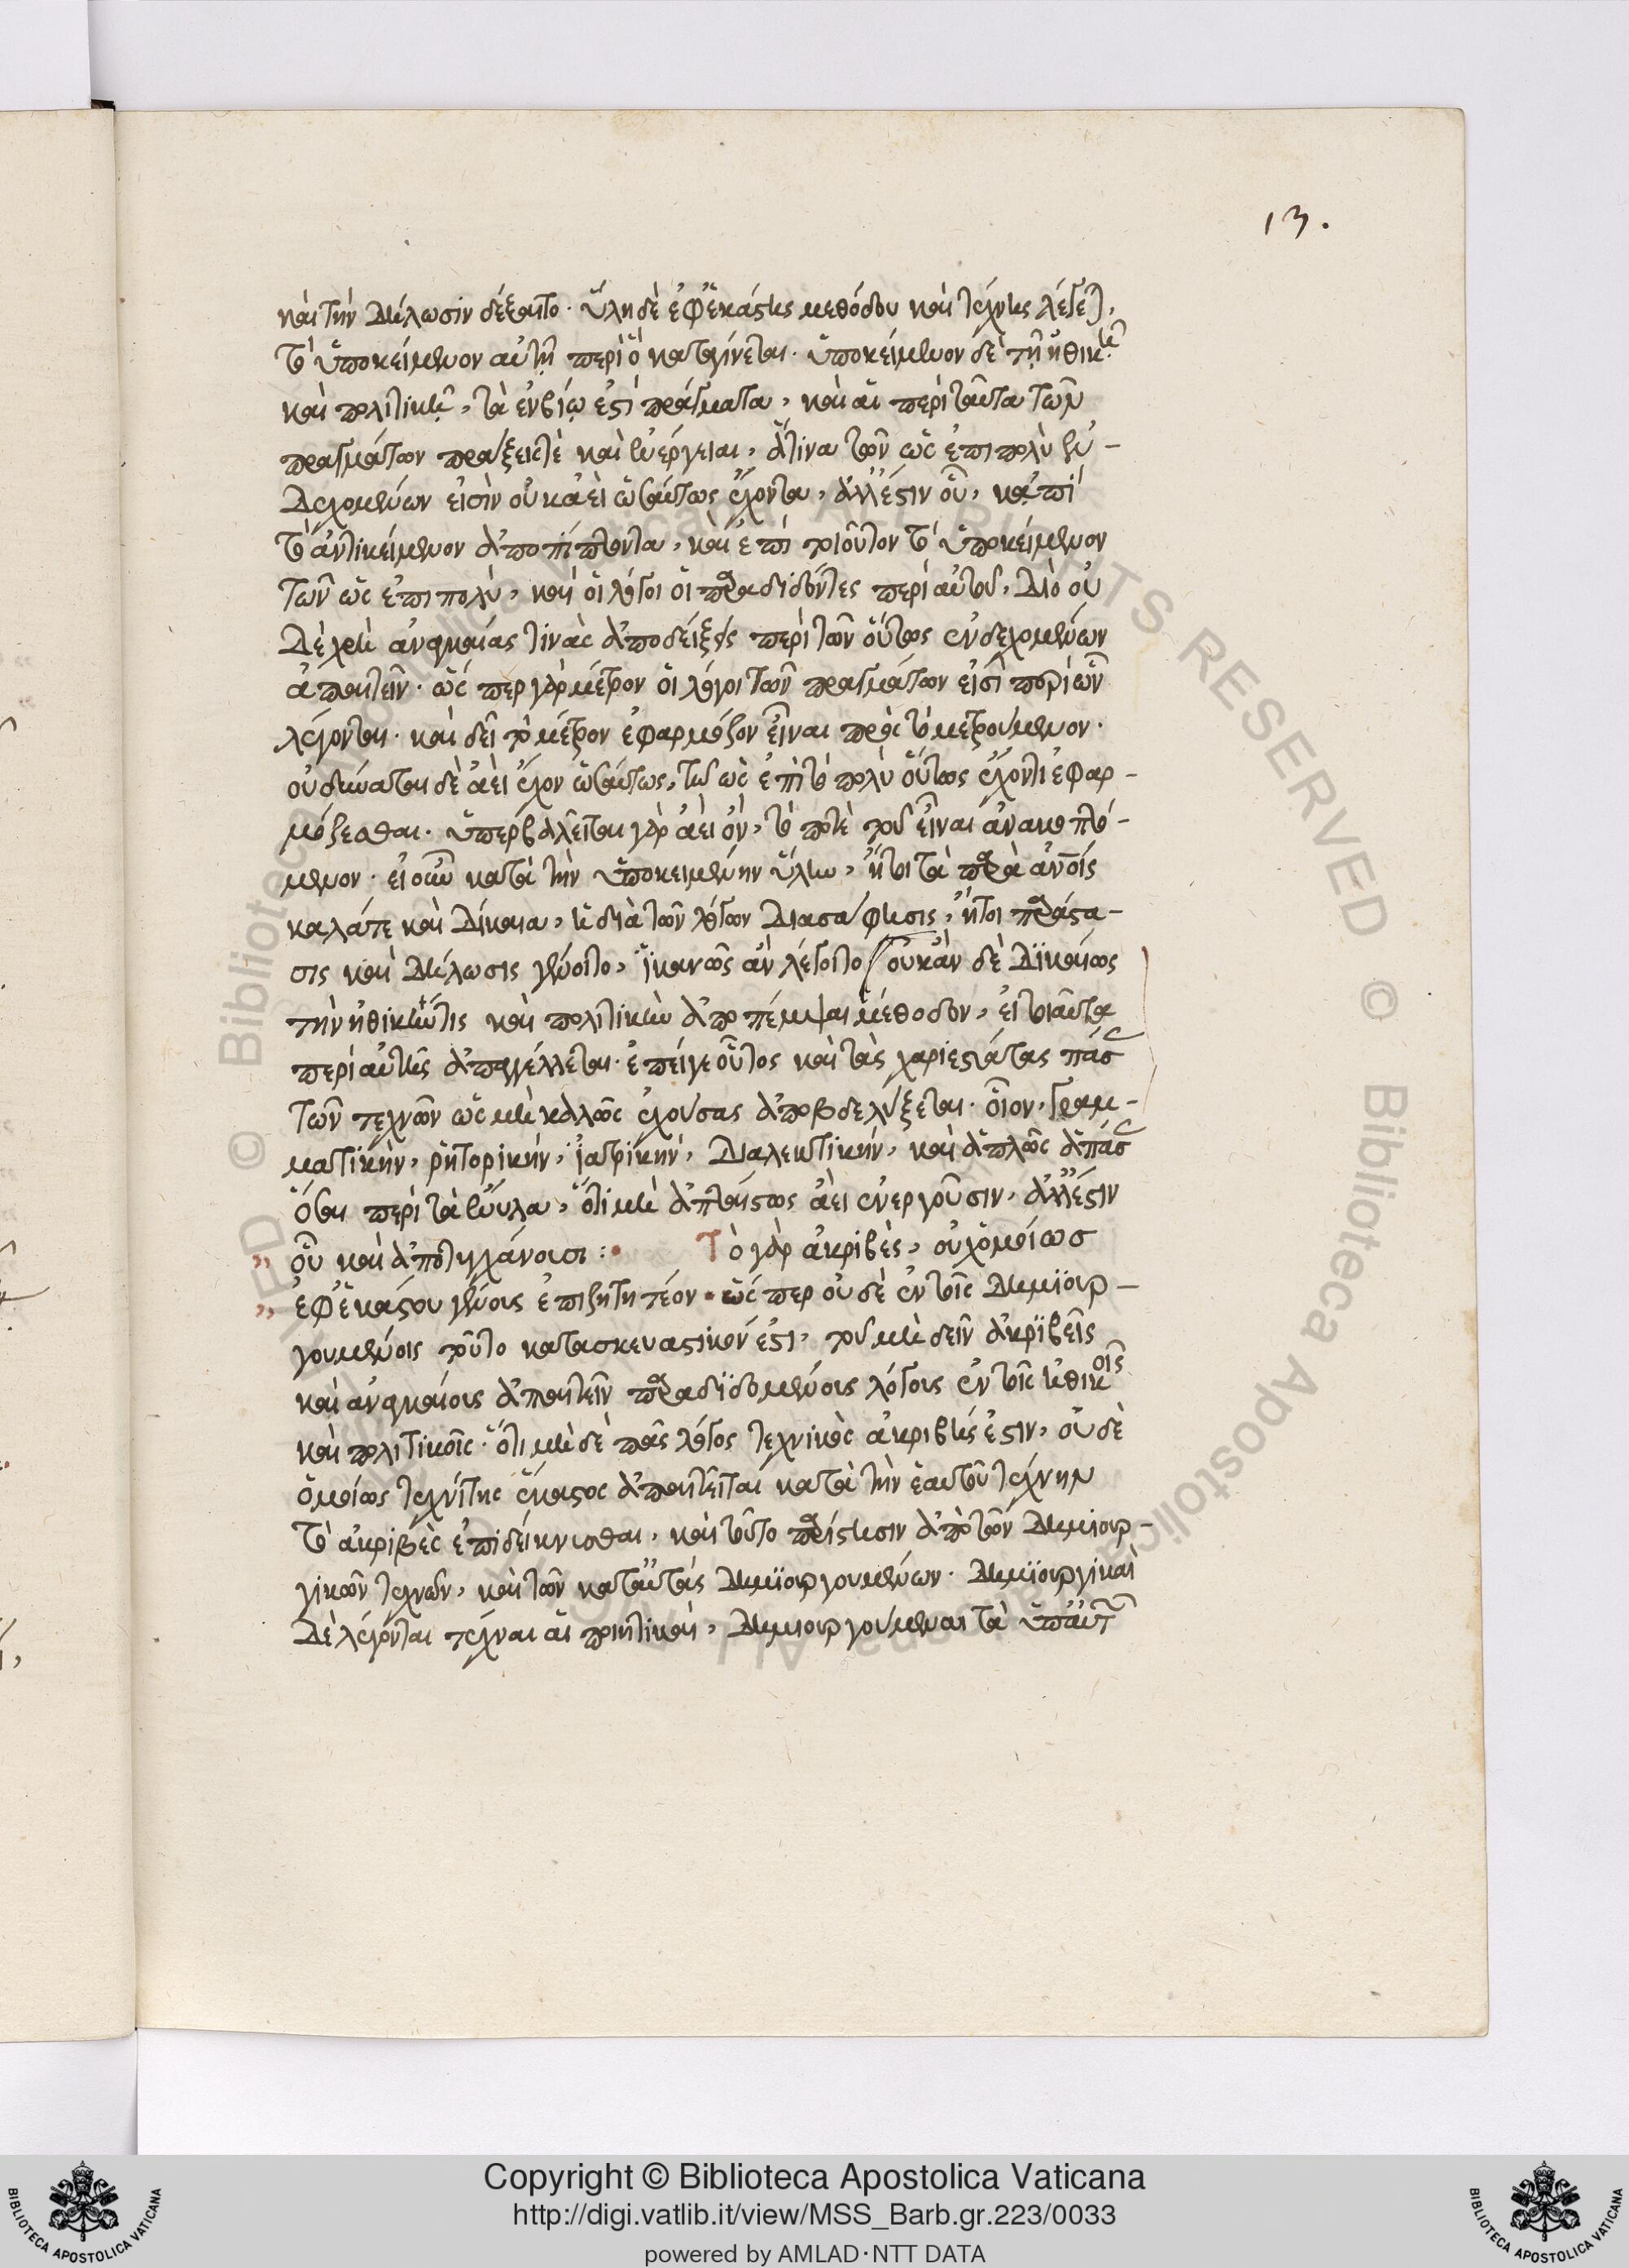 13.
καὶ τὴν δήλωσιν δέξαιτο. ὕλη δὲ ἐφ' ἑκάστης μεθόδου καὶ τέχνης λέγεται,
τὸ ὑποκείμενον αὐτῇ περὶ ὃ καταγίνεται. ὑποκείμενον δὲ τῇ ἠθικῇ
καὶ πολιτικῇ, τὰ ἐν βίῳ ἐστὶ πράγματα, καὶ αἱ περὶ ταῦτα τῶν
πραγμάτων πράξεις τὲ καὶ ἐνέργειαι, ἅτινα τῶν ὡς ἐπιπολὺ ἐν-
δεχομένων εἰσὶν οὐκ ἀεὶ ὡσαύτως ἔχοντα, ἀλλ' ἔστιν οὗ, κἀπὶ
τὸ ἀντικείμενον ἀποπίπτοντα, καὶ ἐπὶ τοιοῦτον τὸ ὑποκείμενον
τῶν ὡς ἐπιπολὺ, καὶ οἱ λόγοι οἱ παραδιδόντες περὶ αὐτοῦ, διὸ οὐ
δὲ χρὴ ἀναγκαίας τινὰς ἀποδείξεις περὶ τῶν οὕτως ἐνδεχομένων
ἀπαιτεῖν. ὥς περ γὰρ μέτρον οἱ λόγοι τῶν πραγμάτων εἰσὶ περὶ ὧν
λέγονται. καὶ δεῖ τὸ μέτρον ἐφαρμόζον εἶναι πρὸς τὸ μετρούμενον.
οὐ δύναται δὲ ἀεὶ ἔχον ὡσαύτως, τῷ ὡς ἐπὶ τὸ πολὺ οὕτως ἔχοντι ἐφαρ-
μόζεσθαι. ὑπερβαλεῖται γὰρ ἀεὶ ὂν, τὸ ποτὲ τοῦ εἶναι ἀνακοπτό-
μενον. εἰ οὖν κατὰ τὴν ὑποκειμένην ὕλην, ἤτοι τὰ παρὰ ἀνοις
καλά τε καὶ δίκαια, ἡ διὰ τῶν λόγων διασάφησις, ἤτοι παράστα-
σις καὶ δήλωσις γένοιτο, ἱκανῶς ἂν λέγοιτο οὐκ ἂν δὲ δικαίως
τὴν ἠθικὴν τὶς καὶ πολιτικὴν ἀποπέμψαι μέθοδον, εἰ τοιαῦτα
περὶ αὐτῆς ἀπαγγέλλεται. ἐπείγε οὗτος καὶ τὰς χαριεστάτας πάσ
τῶν τεχνῶν ὡς μὴ καλῶς ἐχούσας ἀποβδελύξεται. οἷον, γραμ-
ματικὴν, ῥητορικήν, ἰατρικήν, διαλεκτικήν, καὶ ἁπλῶς ἁπάσ
ὅσαι περὶ τὰ ἔνυλα, ὅτι μὴ ἀπταίστως ἀεὶ ἐνεργοῦσιν, ἀλλ' ἔστιν
οὗ καὶ ἀποτυγχάνουσι: Τὸ γὰρ ἀκριβὲς, οὐχ ὁμοίωσ
ἐφ' ἑκάστου γένους ἐπιζητητέον. ὥς περ οὐδὲ ἐν τοῖς δημιουρ-
γουμένοις τοῦτο κατασκευαστικόν ἐστι, τοῦ μὴ δεῖν ἀκριβεῖς
καὶ ἀναγκαίους ἀπαιτεῖν παραδιδομένους λόγους ἐν τοῖς ἠθικοῖς
καὶ πολιτικοῖς. ὅτι μὴ δὲ πᾶς λόγος τεχνικὸς ἀκριβής ἐστιν, οὐδὲ
ὁμοίως τεχνίτης ἕκαστος ἀπαιτεῖται κατὰ τὴν ἑαυτοῦ τέχνην
τὸ ἀκριβὲς ἐπιδείκνυσθαι, καὶ τοῦτο παρίστησιν ἀπὸ τῶν δημιουρ-
γικῶν τεχνῶν, καὶ τῶν κατ' αὐτάς δημιουργουμένων. δημιουργικαὶ
δὲ λέγονται τέχναι αἱ ποιητικαὶ, δημιουργούμεναι τὰ ὑπ' αὐτ
Copyright © Biblioteca Apostolica Vaticana
http://digi.vatlib.it/view/MSS_Barb.gr.223/0033
powered by AMLAD·NTT DATA